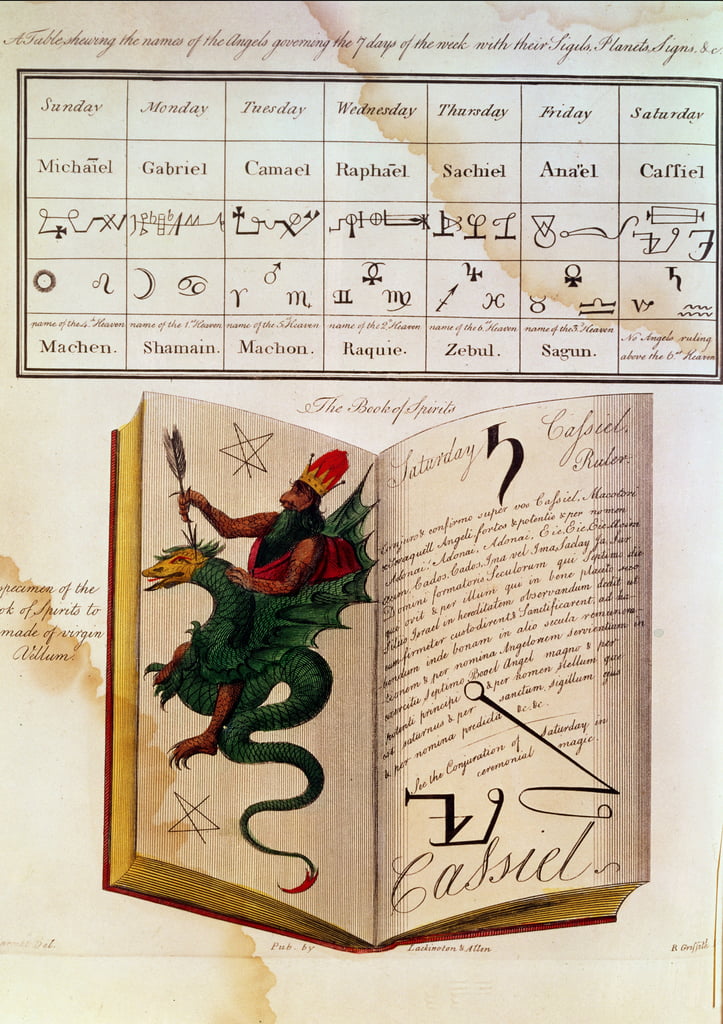 A Table shewing the names of the Angels governing the 7 days of the week with their Sigils, Planets, Signs, &c.
Sunday Monday Tuesday Wednesday Thursday Friday Saturday
Michaïel Gabriel Camael Raphaël Sachiel Anaël Caſſiel
☉ ♌ ☽ ♋ ♂ ♈ ♏ ☿ ♊ ♍ ♃ ♐ ♓ ♀ ♉ ♎ ♄ ♑ ♒
name of the 4th Heaven name of the 1st Heaven name of the 5th Heaven name of the 2d Heaven name of the 6th Heaven name of the 3d Heaven No Angels ruling
Machen. Shamain. Machon. Raquie. Zebul. Sagun. above the 6th Heaven
The Book of Spirits
Saturday ♄ Caſſiel.
Ruler.
Conjuro & confirmo super vos Caſſiel, Macotori
Seraquiel Angeli fortes & potentis & per nomen
Adonai, Adonai, Adonai, Eie, Eie, Eie
Cados, Cados, Ima vel Ima, Saday Ja Sar
Domini formatoris Seculorum qui Septimo die
& per illum qui in bene placito suo
filius Israel in hereditatem observandum dedit ut
eum firmiter custodirent & Sanctificarent, ad
inde bonam in alio secula
& per nomina Angelorum servientium in
exercitu Septimo Booel Angel magno & per
potenti principi & per nomen stellum quo
est saturnus & per sanctum sigillum
& per nomina predicta &c. &c.
See the Conjuration of Saturday in
ceremonial magic.
Caſſiel
specimen of the
Book of Spirits to
made of virgin
Vellum.
Del.
Pub. by Lackington & Allen
R Griffith